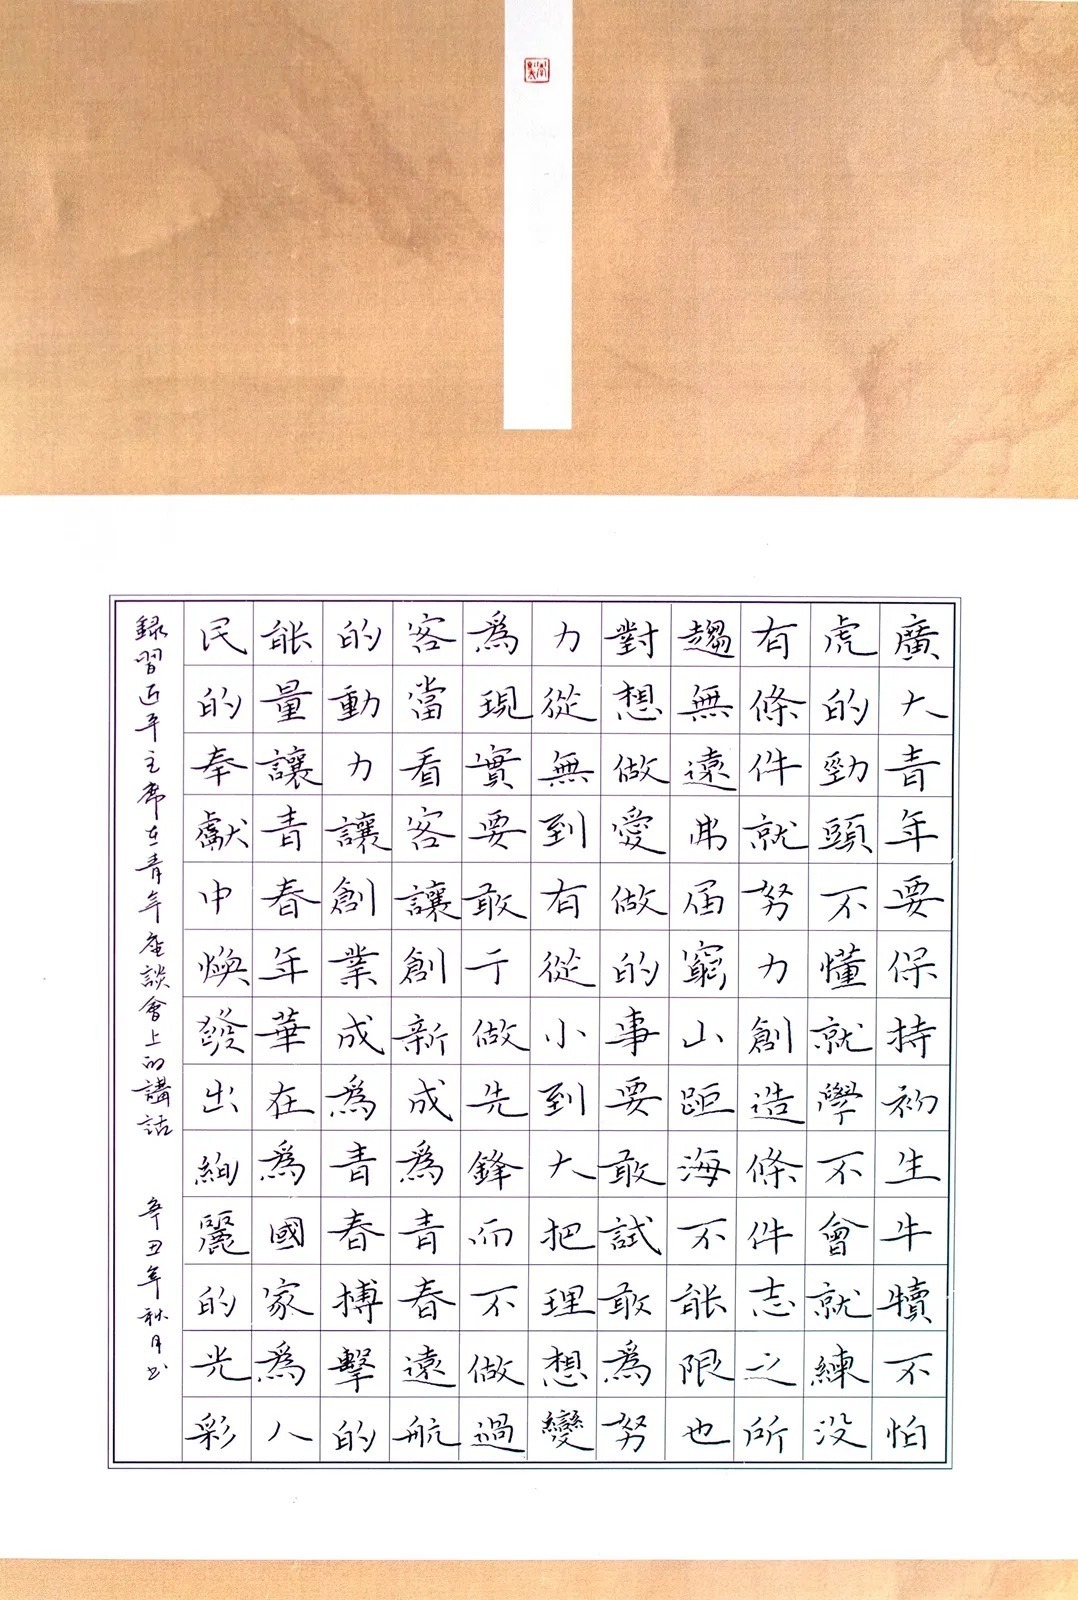 廣大青年要保持初生牛犢不怕
虎的勁頭不懂就學不會就練没
有條件就努力創造條件志之所
趨無遠弗届窮山距海不能限也
對想做愛做的事要敢試敢爲努
力從無到有從小到大把理想變
爲現實要敢于做先鋒而不做過
客當看客讓創新成爲青春遠航
的動力讓創業成爲青春搏擊的
能量讓青春年華在爲國家爲人
民的奉獻中煥發出絢麗的光彩
録習近平主席在青年座談會上的講話 辛丑年秋月书